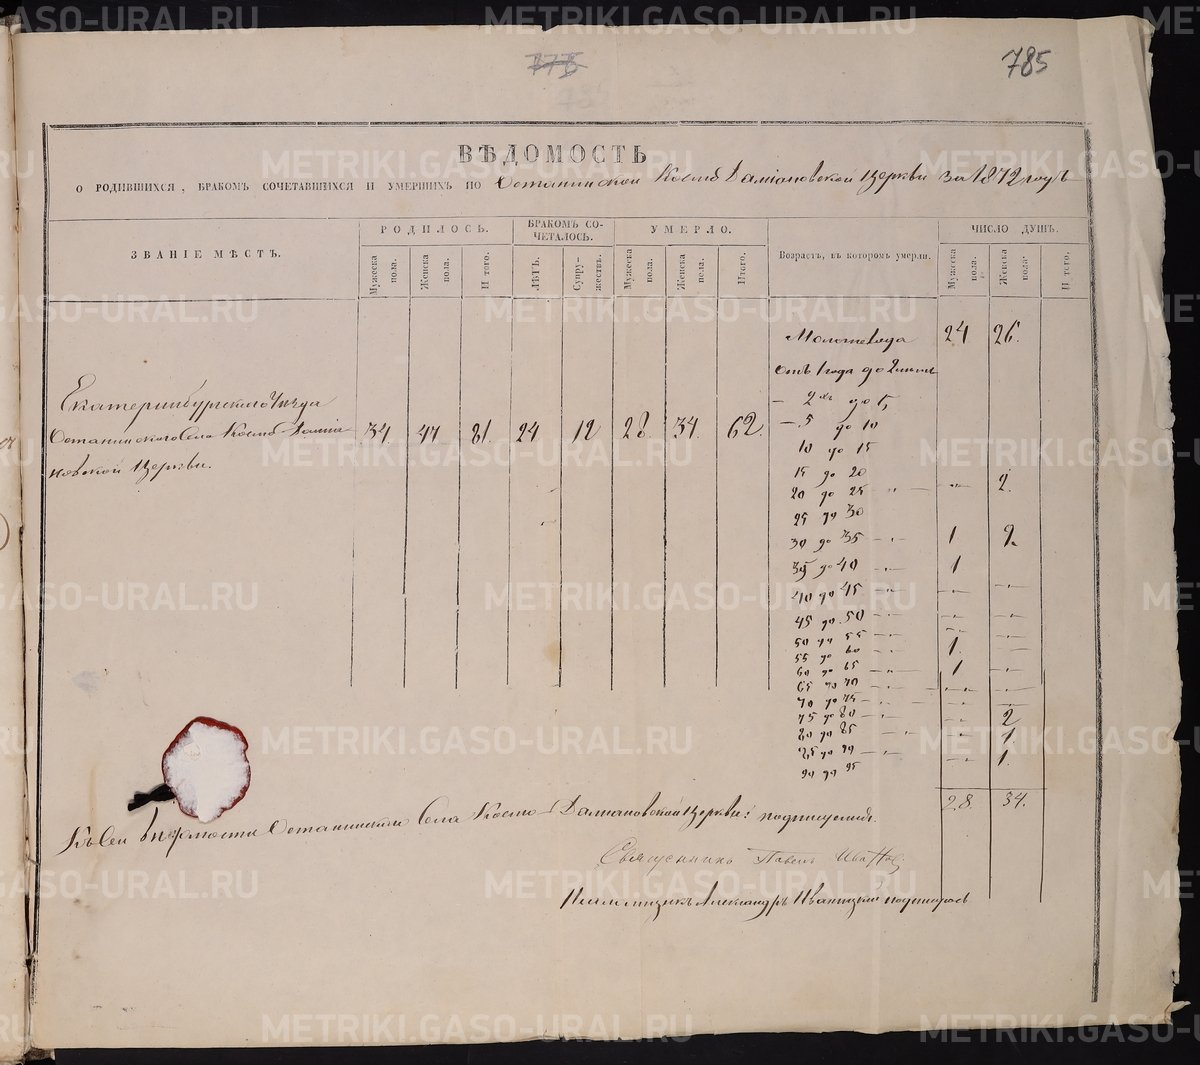 778
785
ВѢДОМОСТЬ
О РОДИВШИХСЯ, БРАКОМЪ СОЧЕТАВШИХСЯ И УМЕРШИХЪ ПО Останинской Космо Даміановской церкви за 1872 годъ
ЗВАНІЕ МѢСТЪ.
РОДИЛОСЬ.
БРАКОМЪ СО-
ЧЕТАЛОСЬ.
УМЕРЛО.
Возрастъ, въ которомъ умерли.
ЧИСЛО ДУШЪ.
Мужеска пола.
Женска пола.
И того.
ЛѢТЪ.
Супру-
жествъ.
Мужеска пола.
Женска пола.
Итого.
Мужеска пола.
Женска пола.
И того.
Моложе года 24 26.
Отъ 1 года до 2 лѣтъ
— 2хъ до 5,
— 5 до 10
10 до 15
15 до 20
20 до 25 2.
25 до 30
30 до 35 1 2.
35 до 40 1
40 до 45
45 до 50
50 до 55
55 до 60 1.
60 до 65 1
65 до 70
70 до 75
75 до 80 2
80 до 85 1.
85 до 90 1.
90 до 95
28. 34.
Екатеринбургскаго Уѣзда
Останинскаго Села Космо-Даміа-
новской Церкви.
34. 47 81. 24 12 28. 34. 62.
Къ сей вѣдомости Останинскаго Села Космо-Даміановской церкви подписуемся.
Священникъ Павелъ Ивановъ
Псаломщикъ Александръ Иваницкій
METRIKI.GASO-URAL.RU